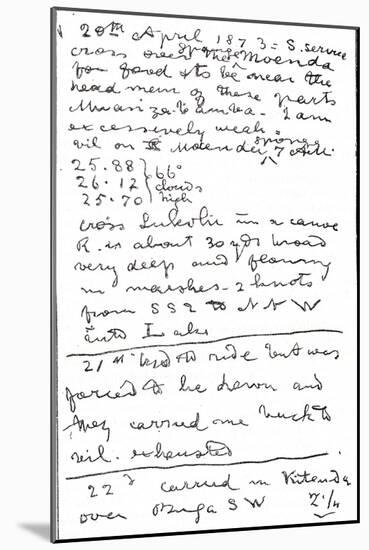 20th April 1873 = S. service
cross over the sponge Moenda
for food & to be near the
head men of these parts
Moanza-bamba. I am
excessively weak =
vil on Moenda sponge 7 A.M.
25.88
26.12
25.70
66°
clouds
high
cross Lukulu in a canoe
R. is about 30 yds broad
very deep and flowing
in marshes - 2 knots
from SSE to NNW
into Lake
21st tried to ride but was
forced to lie down and
they carried me back to
vil. exhausted
22d carried in Kitanda
over Buga SW 2 1/4